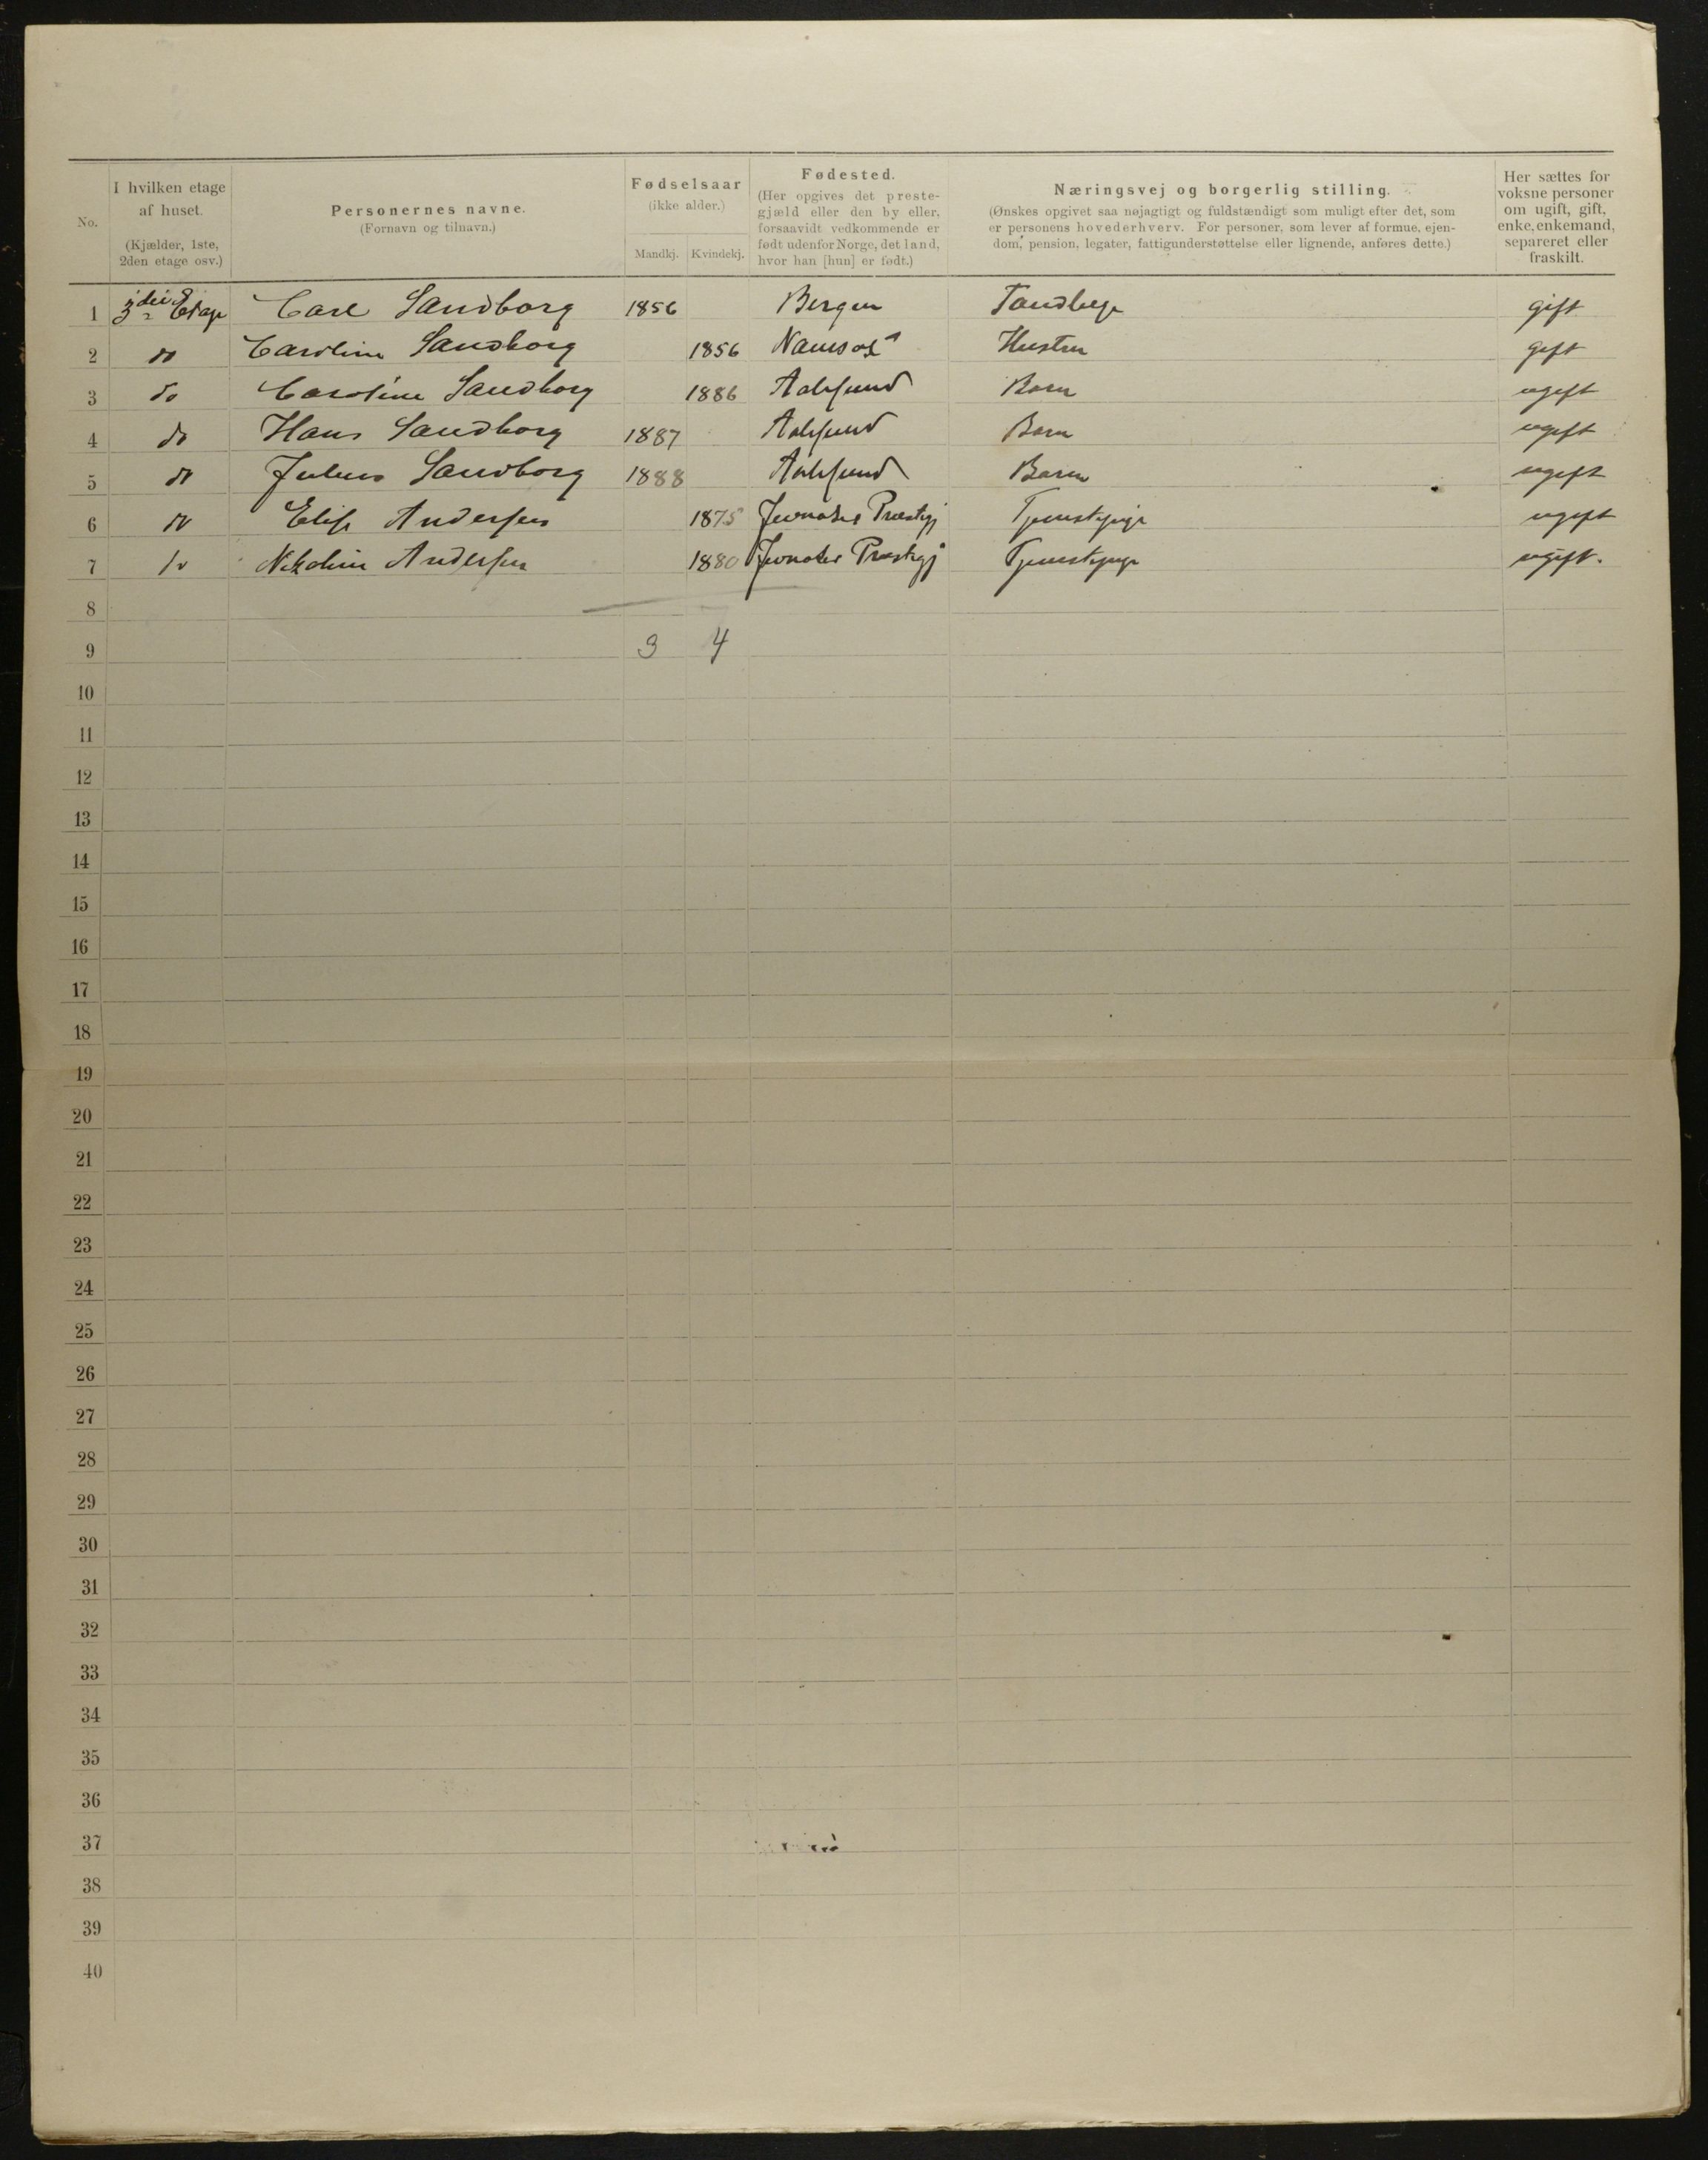 No.
I hvilken etage af huset.
(Kjælder, 1ste, 2den etage osv.)
Personernes navne.
(Fornavn og tilnavn.)
Fødselsaar
(ikke alder.)
Mandkj. Kvindekj.
Fødested.
(Her opgives det preste-
gjæld eller den by eller,
forsaavidt vedkommende er
født udenfor Norge, det land,
hvor han [hun] er født.)
Næringsvej og borgerlig stilling.
(Ønskes opgivet saa nøjagtigt og fuldstændigt som muligt efter det, som
er personens hovederhverv. For personer, som lever af formue, ejen-
dom, pension, legater, fattigunderstøttelse eller lignende, anføres dette.)
Her sættes for
voksne personer
om ugift, gift,
enke, enkemand,
separeret eller
fraskilt.
1 3die Etage Carl Sandborg 1856 Bergen Tandlæge gift
2 do Caroline Sandborg 1856 Namsos Hustru gift
3 do Caroline Sandborg 1886 Aalesund Barn ugift
4 do Hans Sandborg 1887 Aalesund Barn ugift
5 do Julius Sandborg 1888 Aalesund Barn ugift
6 do Elise Andersen 1875 Jevnaker Præstgj Tjenestepige ugift
7 do Nikoline Andersen 1880 Jevnaker Præstegj Tjenestepige ugift.
8
9 3 4
10
11
12
13
14
15
16
17
18
19
20
21
22
23
24
25
26
27
28
29
30
31
32
33
34
35
36
37
38
39
40